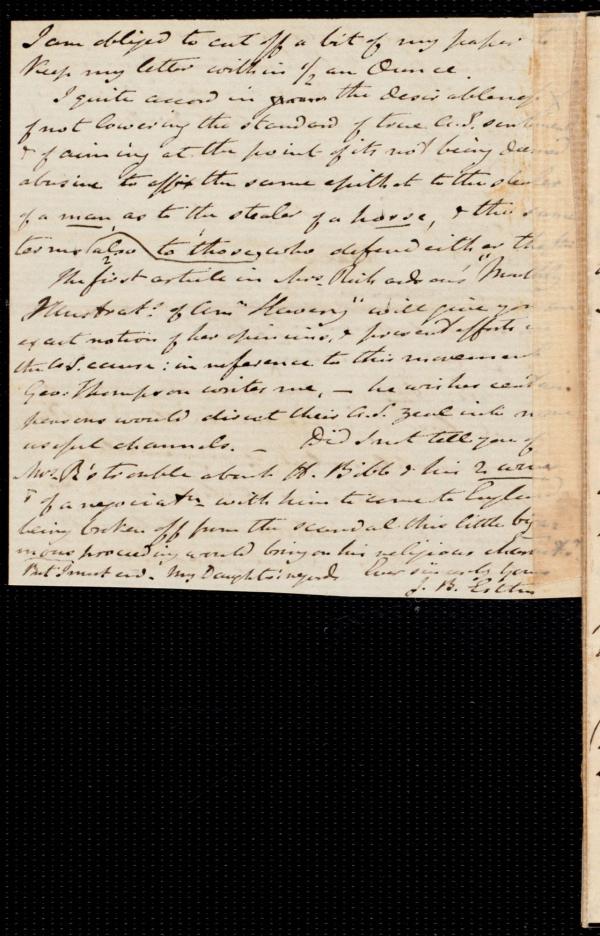 I am obliged to cut off a bit of my paper to
keep my letter within 1/2 an Ounce.
I quite accord in the desirableness
of not lowering the standard of true A.S. sentiment
& of aiming at the point of its not being deemed
abusive to affix the same epithet to the stealer
of a man, as to the stealer of a horse, & the same
terms also to those who defend either the
The first article in Mrs. Richardson's "
Illustrats. of Amn Slavery" will give you
exact notion of her opinions, & present efforts in
the A.S. cause: in reference to this movement
Geo: Thompson writes me, — he wishes certain
persons would direct their A.S. zeal into more
useful channels. — Did I not tell you of
Mrs. R's trouble about H. Bibb & his 2 wives
& of a negociatn with him to come to England
being broken off from the scandal this little biga-
mous proceeding would bring on his religious
But I must end. My Daughter's regards Ever sincerely Yours
J. B. Estlin